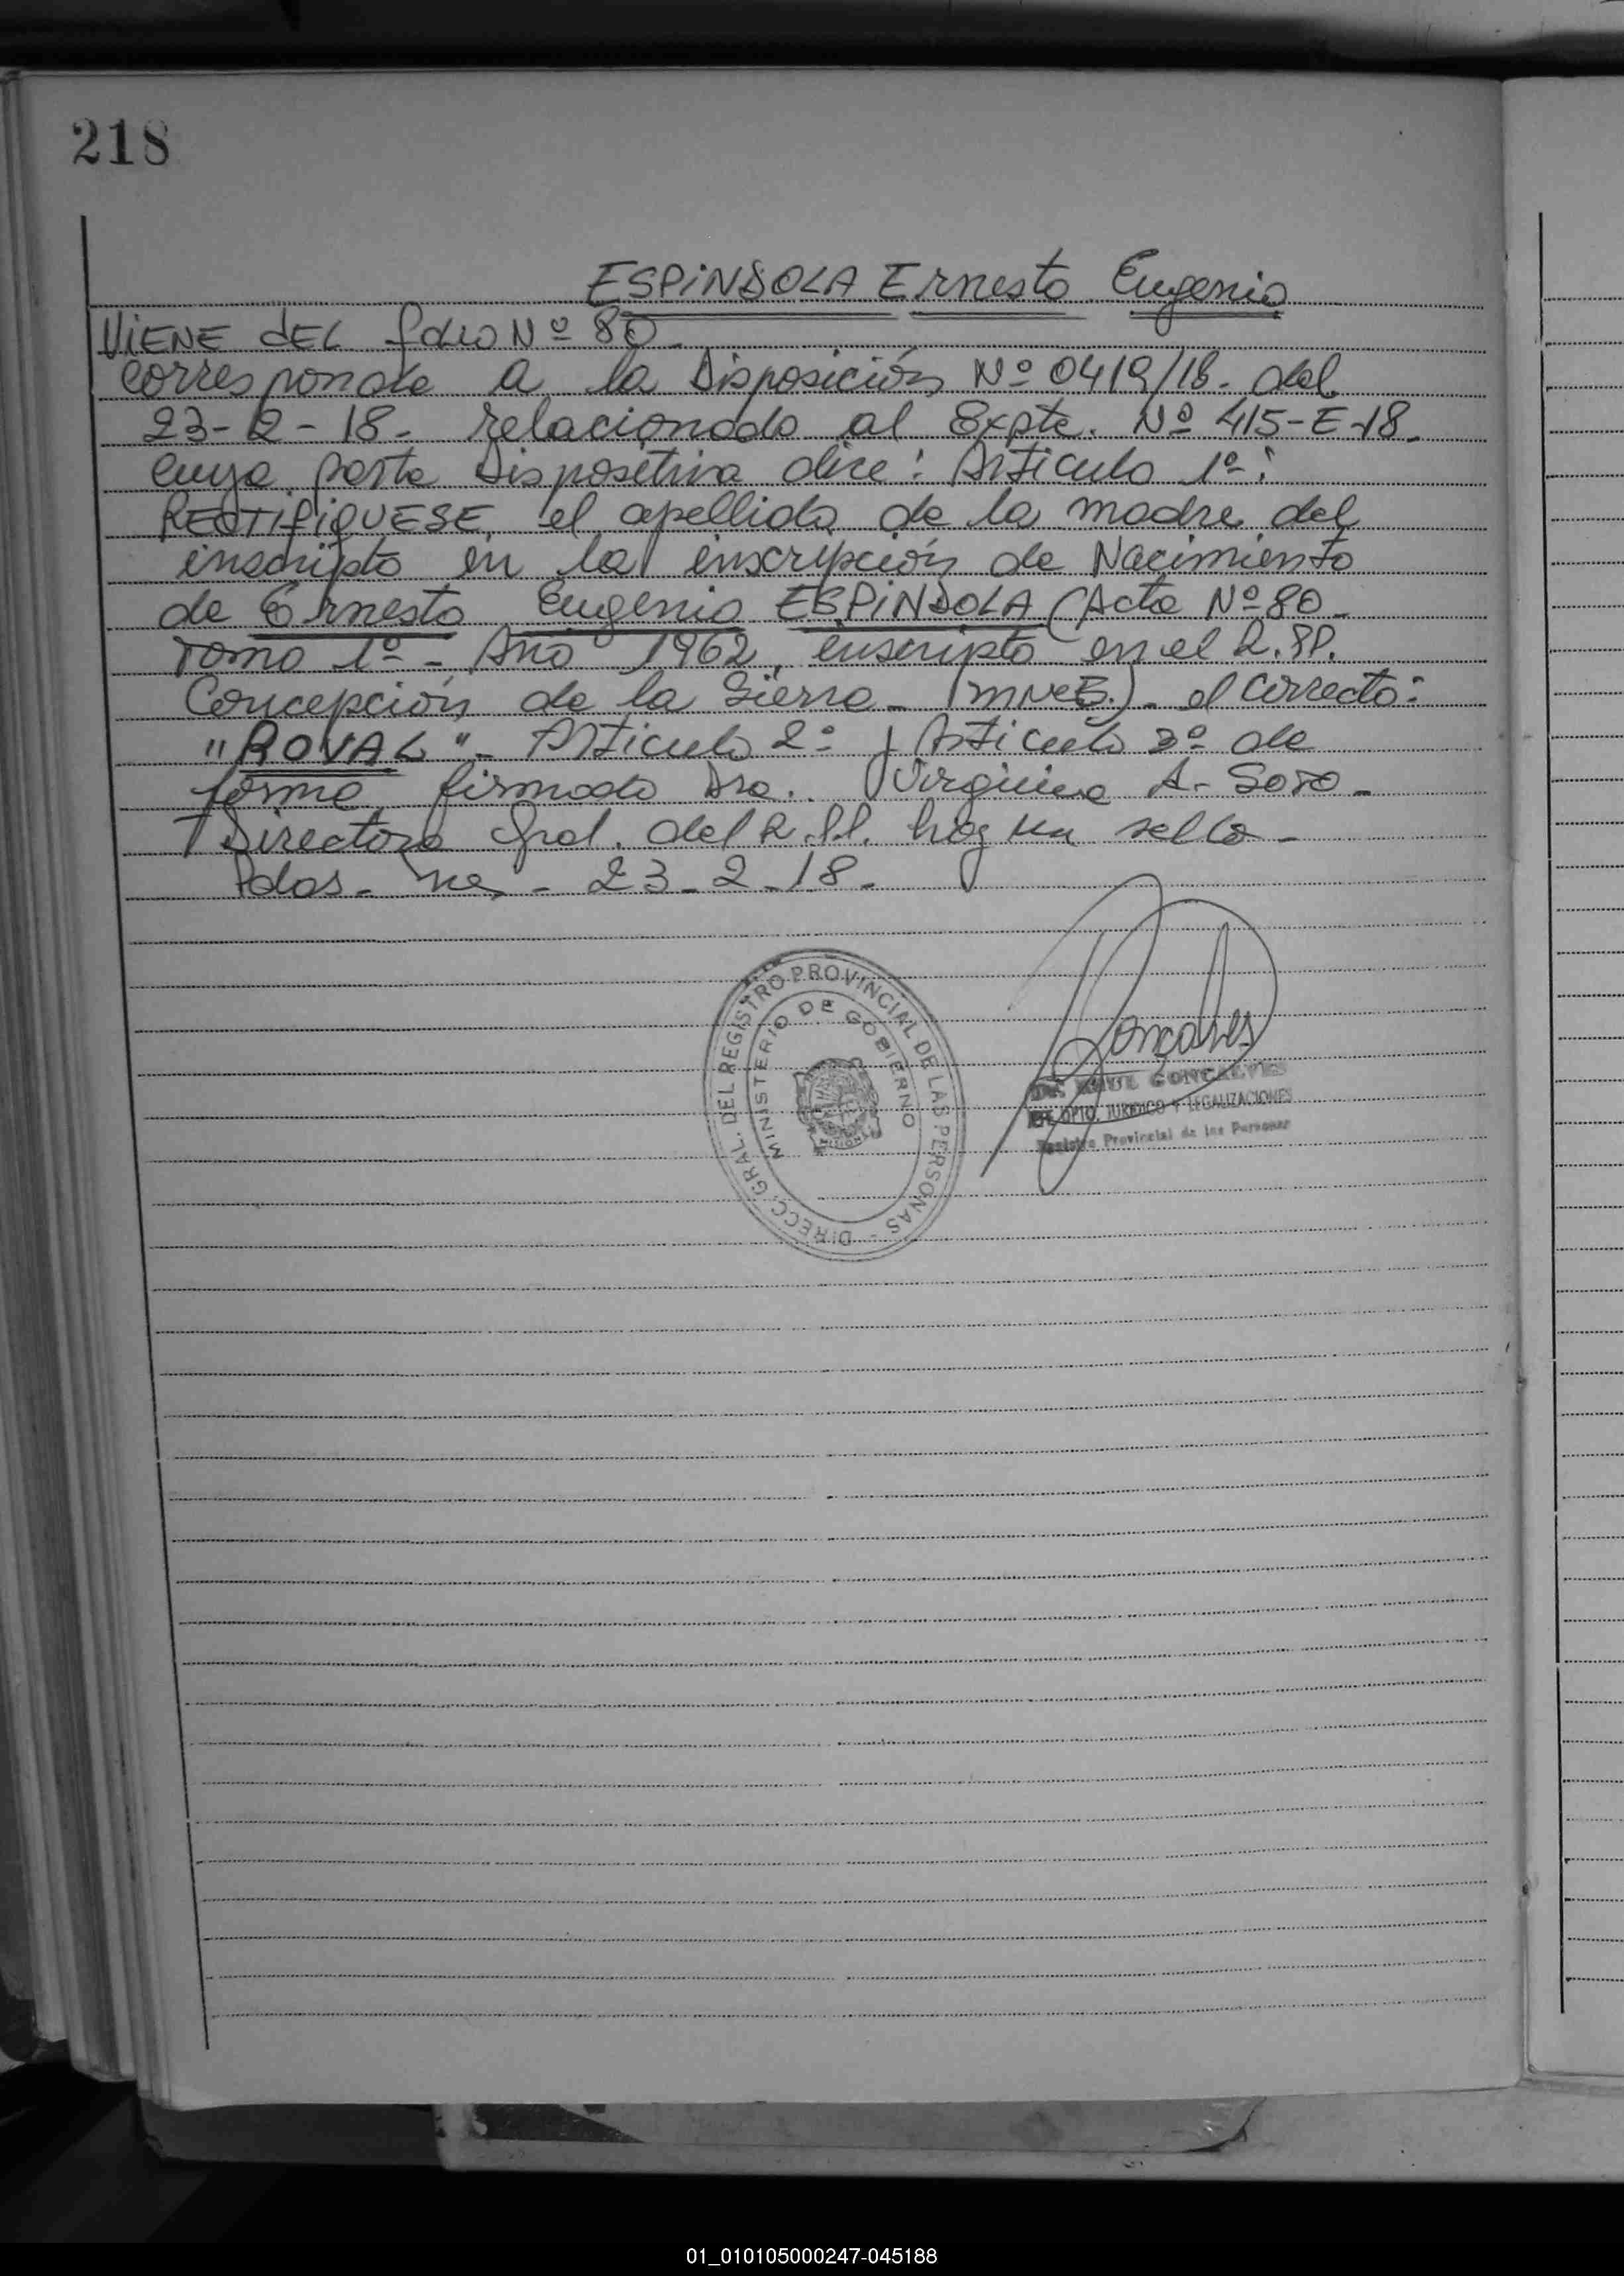 218
ESPINDOLA Ernesto Eugenio
VIENE DEL folio Nº 80.
corresponde a la Disposición Nº 0419/18. del
23-2-18. relacionado al Expte. Nº 415-E-18.
cuya parte Dispositiva dice: Articulo 1º:
RECTIFIQUESE el apellido de la madre del
inscripto en la inscripción de Nacimiento
de Ernesto Eugenio ESPINDOLA (Acta Nº 80-
Tomo 1º - Año 1962, inscripto en el R.PP.
Concepción de la Sierra - Mnes.) - el correcto:
"ROVAL" - Articulo 2º y Articulo 3º de
forma firmado Dra. Virginia A. Soto -
Directora Gral. del R.PP. hoy un sello -
Pdas. - 23-2-18.
DIRECC. GRAL. DEL REGISTRO PROVINCIAL DE LAS PERSONAS -
MINISTERIO DE GOBIERNO
MISIONES
Gonçalves
GONCALVES
DPTO. JURIDICO Y LEGALIZACIONES
Registro Provincial de las Personas
01_010105000247-045188